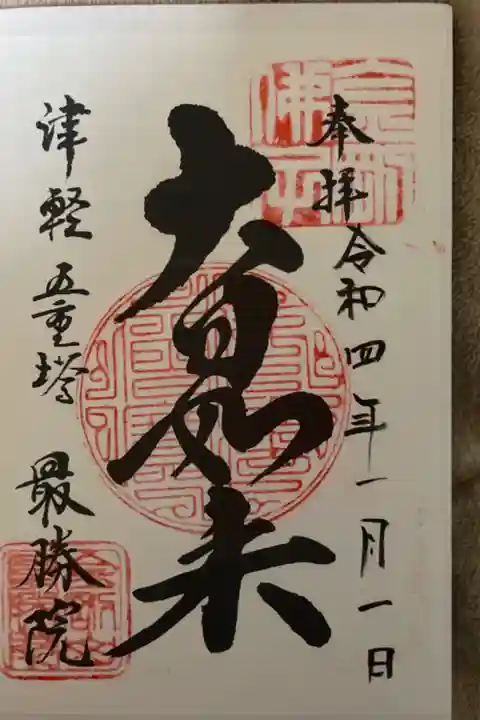 奉拝 令和四年一月一日
大日如来
津軽 五重塔 最勝院